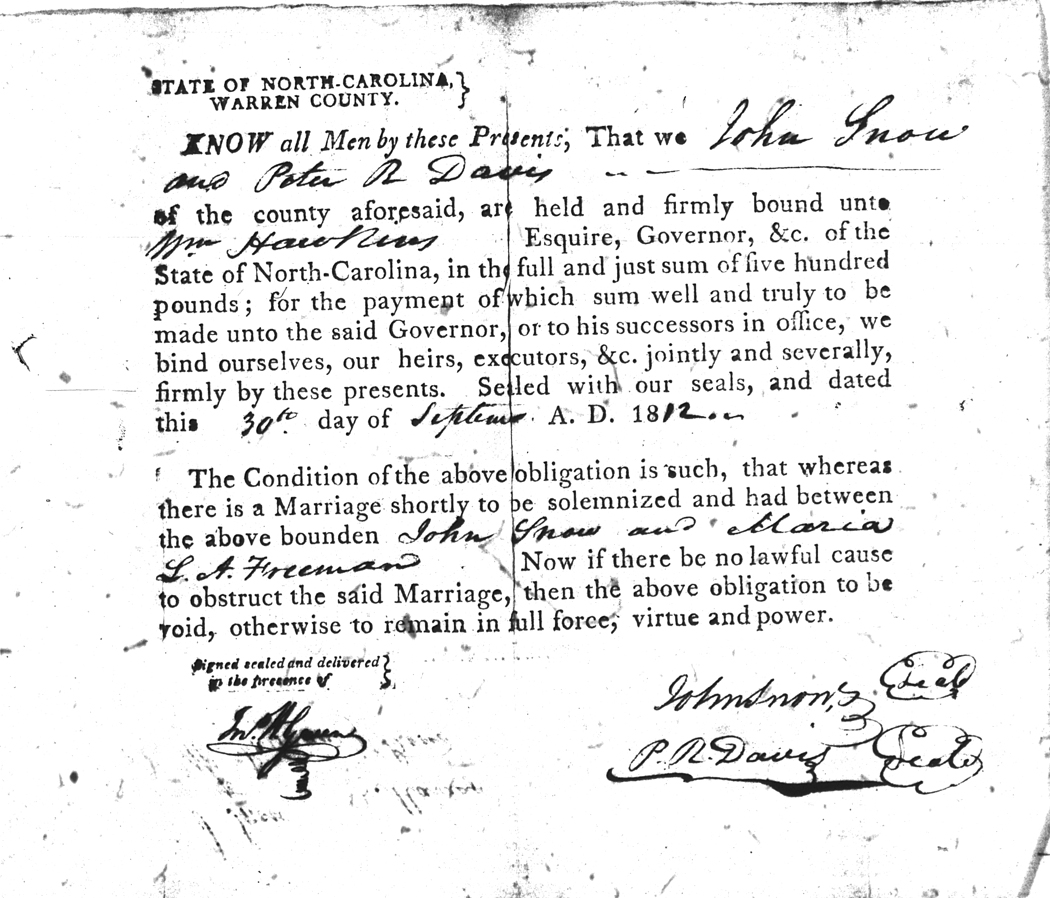 STATE OF NORTH-CAROLINA,
WARREN COUNTY.
KNOW all Men by these Presents, That we John Snow
and Peter R Davis
of the county aforesaid, are held and firmly bound unto
Wm Hawkins Esquire, Governor, &c. of the
State of North-Carolina, in the full and just sum of five hundred
pounds; for the payment of which sum well and truly to be
made unto the said Governor, or to his successors in office, we
bind ourselves, our heirs, executors, &c. jointly and severally,
firmly by these presents. Sealed with our seals, and dated
this 30th day of Septemr A. D. 1812.
The Condition of the above obligation is such, that whereas
there is a Marriage shortly to be solemnized and had between
the above bounden John Snow and Maria
L. A. Freeman Now if there be no lawful cause
to obstruct the said Marriage, then the above obligation to be
void, otherwise to remain in full force, virtue and power.
Signed sealed and delivered
in the presence of
John Snow, Seal
Jno. Green
P. R. Davis Seal